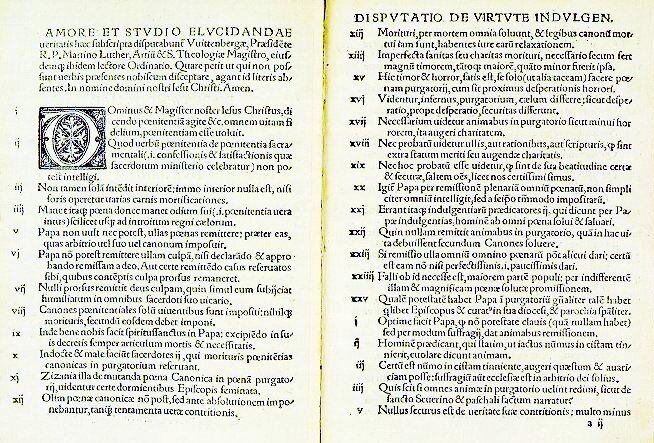 AMORE ET STVDIO ELVCIDANDAE
ueritatis hæc subscripta disputabunt̃ Vuittenbergæ, Præsidẽte
R. P. Martino Luther, Artiũ & S. Theologiæ Magistro, eius-
dem q̃ ibidem lectore Ordinatio. Quare petit ut qui non pos-
sunt uerbis præsentes nobiscum disceptare, agant id literis ab-
sentes. In nomine domini nostri Iesu Christi. Amen.
i DOminus & Magister noster Iesus Christus, di-
cendo pœnitentiã agite &c. omnem uitam fi-
delium, pœnitentiam esse uoluit.
ij Quod uerbũ pœnitentia de pœnitentia sacra-
mentali (.i. confessionis & satisfactionis quæ
sacerdotum ministerio celebratur) non po-
test intelligi.
iij Non tamen solã intẽdit interiorẽ; immo interior nulla est, nisi
foris operetur uarias carnis mortificationes.
iiij Manet itaq̃ pœna donec manet odium sui (.i. pœnitentia uera
intus) scilicet usq̃ ad introitum regni cælorum.
v Papa non uult nec potest, ullas pœnas remittere; præter eas,
quas arbitrio uel suo uel canonum imposuit.
vj Papa nõ potest remittere ullam culpã, nisi declarãdo & appro-
bando remissam a deo. Aut certe remittẽdo casus reseruatos
sibi, quibus contẽptis culpa prorsus remaneret.
vij Nulli prorsus remittit deus culpam, quin simul eum subijciat
humiliatum in omnibus sacerdoti suo uicario.
viij Canones pœnitentiales solũ uiuentibus sunt impositi; nihilq̃
morituris, secundũ eosdem debet imponi.
ix Inde bene nobis facit spiritussanctus in Papa; excipiẽdo in su-
is decretis semper articulum mortis & necessitatis.
x Indocte & male faciũt sacerdotes ij, qui morituris pœnitẽtias
canonicas in purgatorium reseruant.
xj Zizania illa de mutanda pœna Canonica in pœnã purgato-
rij, uidentur certe dormientibus Episcopis seminata.
xij Olim pœnæ canonicæ nõ post, sed ante absolutionem impo-
nebantur, tanq̃ tentamenta ueræ contritionis.
DISPVTATIO DE VIRTVTE INDVLGEN.
xiij Morituri, per mortem omnia soluunt, & legibus canonũ mor-
tui iam sunt, habentes iure earũ relaxationem.
xiiij Imperfecta sanitas seu charitas morituri, necessario secum fert
magnũ timorem, tãtoq̃ maiorẽ, quãto minor fuerit ipsa.
xv Hic timor & horror, satis est, se solo (ut alia taceam) facere pœ-
nam purgatorij, cum sit proximus desperationis horrori.
xvj Videntur, infernus, purgatorium, cælum differre; sicut despe-
ratio, prope desperatio, securitas differunt.
xvij Necessarium uidetur animabus in purgatorio sicut minui hor-
rorem, ita augeri charitatem.
xviij Nec probatũ uidetur ullis, aut rationibus, aut scripturis, q̃ sint
extra statum meriti seu augendæ charitatis.
xix Nec hoc probatũ esse uidetur, q̃ sint de sua beatitudine certæ
& securæ, saltem oẽs, licet nos certissimi simus.
xx Igit̃ Papa per remissionẽ plenariã omniũ pœnarũ, non simpli-
citer omniũ intelligit, sed a seipo tm̃modo impositarũ.
xxj Errant itaq̃ indulgentiarũ prædicatores ij, qui dicunt per Pa-
pæ indulgentias, hominẽ ab omni pœna solui & saluari.
xxij Quin nullam remittit animabus in purgatorio, quã in hac ui-
ta debuissent secundum Canones soluere.
xxiij Si remissio ulla omniũ omnino pœnarũ põt alicui dari; certũ
est eam nõ nisi perfectissimis .i. paucissimis dari.
xxiiij Falli ob id necesse est, maiorem partẽ populi; per indifferentẽ
illam & magnificam pœnæ solutæ promissionem.
xxv Qualẽ potestatẽ habet Papa ĩ purgatoriũ g̃naliter talẽ habet
q̃libet Episcopus & curat9 in sua diocesi, & parochia sp̃aliter.
i Optime facit Papa, q̃ nõ potestate clauis (quã nullam habet)
sed per modum suffragij, dat animabus remissionem.
ij Hominẽ prædicant, qui statim, ut iactus nũmus in cistam tin-
nierit, euolare dicunt animam.
iij Certũ est nũmo in cistam tinniente, augeri quæstum & auari-
ciam posse; suffragiũ aũt ecclesiæ est in arbitrio dei solius.
iiij Quis scit si omnes animæ in purgatorio uelint redimi, sicut de
sancto Seuerino & paschali factum narratur.
v Nullus securus est de ueritate suæ contritionis; multo minus
a ij